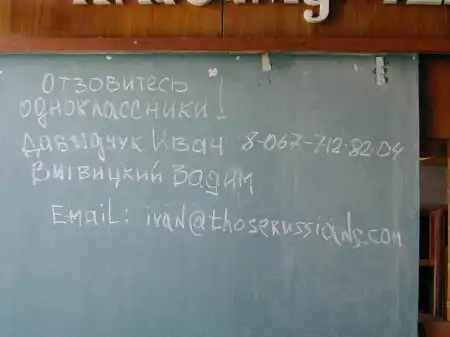 Отзовитесь
одноклассники!
Давыдчук Иван 8-067-712-82-04
Витвицкий Вадим
Email: ivan@thoserussians.com